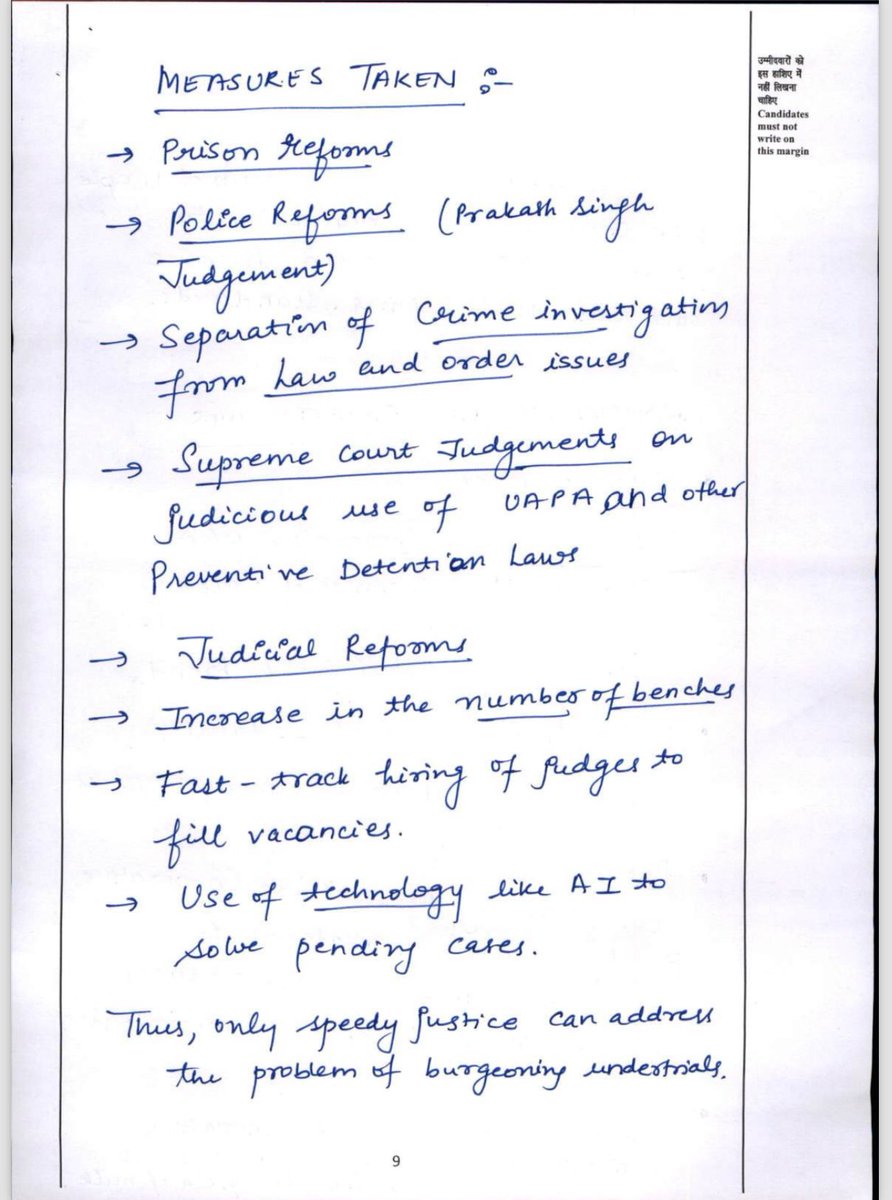 MEASURES TAKEN :-
→ Prison Reforms
→ Police Reforms (Prakash Singh
Judgement)
→ Separation of Crime investigation
from Law and order issues
→ Supreme Court Judgements on
judicious use of UAPA and other
Preventive Detention Laws
→ Judicial Reforms
→ Increase in the number of benches
→ Fast-track hiring of judges to
fill vacancies.
→ Use of technology like AI to
solve pending cases.
Thus, only speedy justice can address
the problem of burgeoning undertrials.
9
उम्मीदवारों को
इस हाशिए में
नहीं लिखना
चाहिए
Candidates
must not
write on
this margin